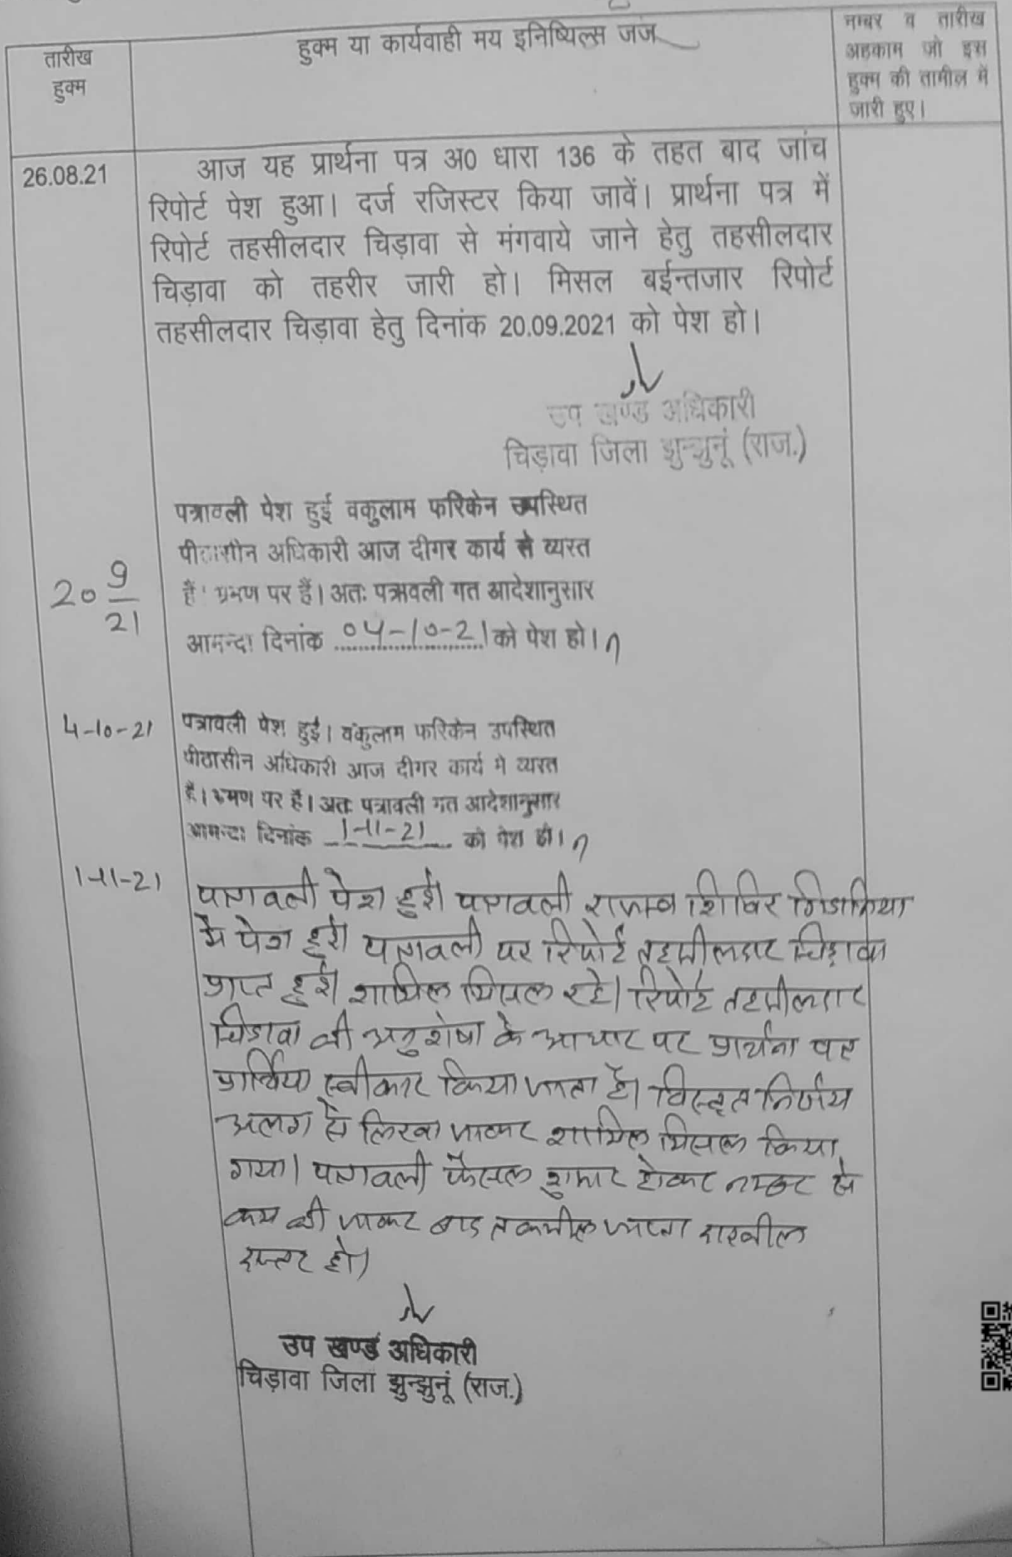 तारीख
हुक्म
हुक्म या कार्यवाही मय इनिष्यिल्स जज
नम्बर व तारीख
अहकाम जो इस
हुक्म की तामील में
जारी हुए।
26.08.21
आज यह प्रार्थना पत्र अ0 धारा 136 के तहत बाद जांच
रिपोर्ट पेश हुआ। दर्ज रजिस्टर किया जावें। प्रार्थना पत्र में
रिपोर्ट तहसीलदार चिड़ावा से मंगवाये जाने हेतु तहसीलदार
चिड़ावा को तहरीर जारी हो। मिसल बईन्तजार रिपोर्ट
तहसीलदार चिड़ावा हेतु दिनांक 20.09.2021 को पेश हो।
उप खण्ड अधिकारी
चिड़ावा जिला झुन्झुनूं (राज.)
20 9/21
पत्रावली पेश हुई वकुलाम फरिकेन उपस्थित
पीठासीन अधिकारी आज दीगर कार्य से व्यस्त
हैं। भ्रमण पर हैं। अतः पत्रावली गत आदेशानुसार
आमन्दा दिनांक 04-10-21 को पेश हो।
4-10-21
पत्रावली पेश हुई। वकुलाम फरिकेन उपस्थित
पीठासीन अधिकारी आज दीगर कार्य मे व्यस्त
है। भ्रमण पर हैं। अतः पत्रावली गत आदेशानुसार
आमन्दा दिनांक 1-11-21 को पेश हो।
1-11-21
पत्रावली पेश हुई। पत्रावली राजस्व शिविर
मे पेश हुई। पत्रावली पर रिपोर्ट तहसीलदार चिड़ावा
प्राप्त हुई। शामिल मिसल रहे। रिपोर्ट तहसीलदार
चिडावा की अनुशंषा के आधार पर प्रार्थना पत्र
प्रार्थिया स्वीकार किया जाता है। विस्तृत निर्णय
अलग से लिखा जाकर शामिल मिसल किया
गया। पत्रावली फैसल शुमार होकर नम्बर से
कम की जाकर बाद तकमील जाप्ता दाखील
दफ्तर हो।
उप खण्ड अधिकारी
चिड़ावा जिला झुन्झुनूं (राज.)